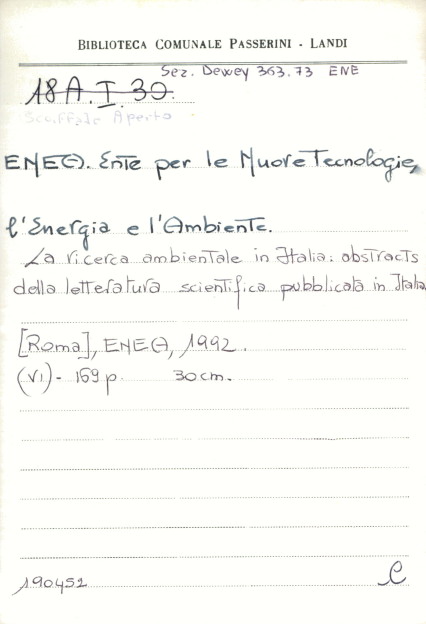 BIBLIOTECA COMUNALE PASSERINI - LANDI
Sez. Dewey 363.73 ENE
18 A. I. 30.
Scaffale Aperto
ENEA. Ente per le Nuove Tecnologie,
l'Energia e l'Ambiente.
La ricerca ambientale in Italia: abstracts
della letteratura scientifica pubblicata in Italia
[Roma], ENEA, 1992.
(VI) - 169 p. 30 cm.
190452
C